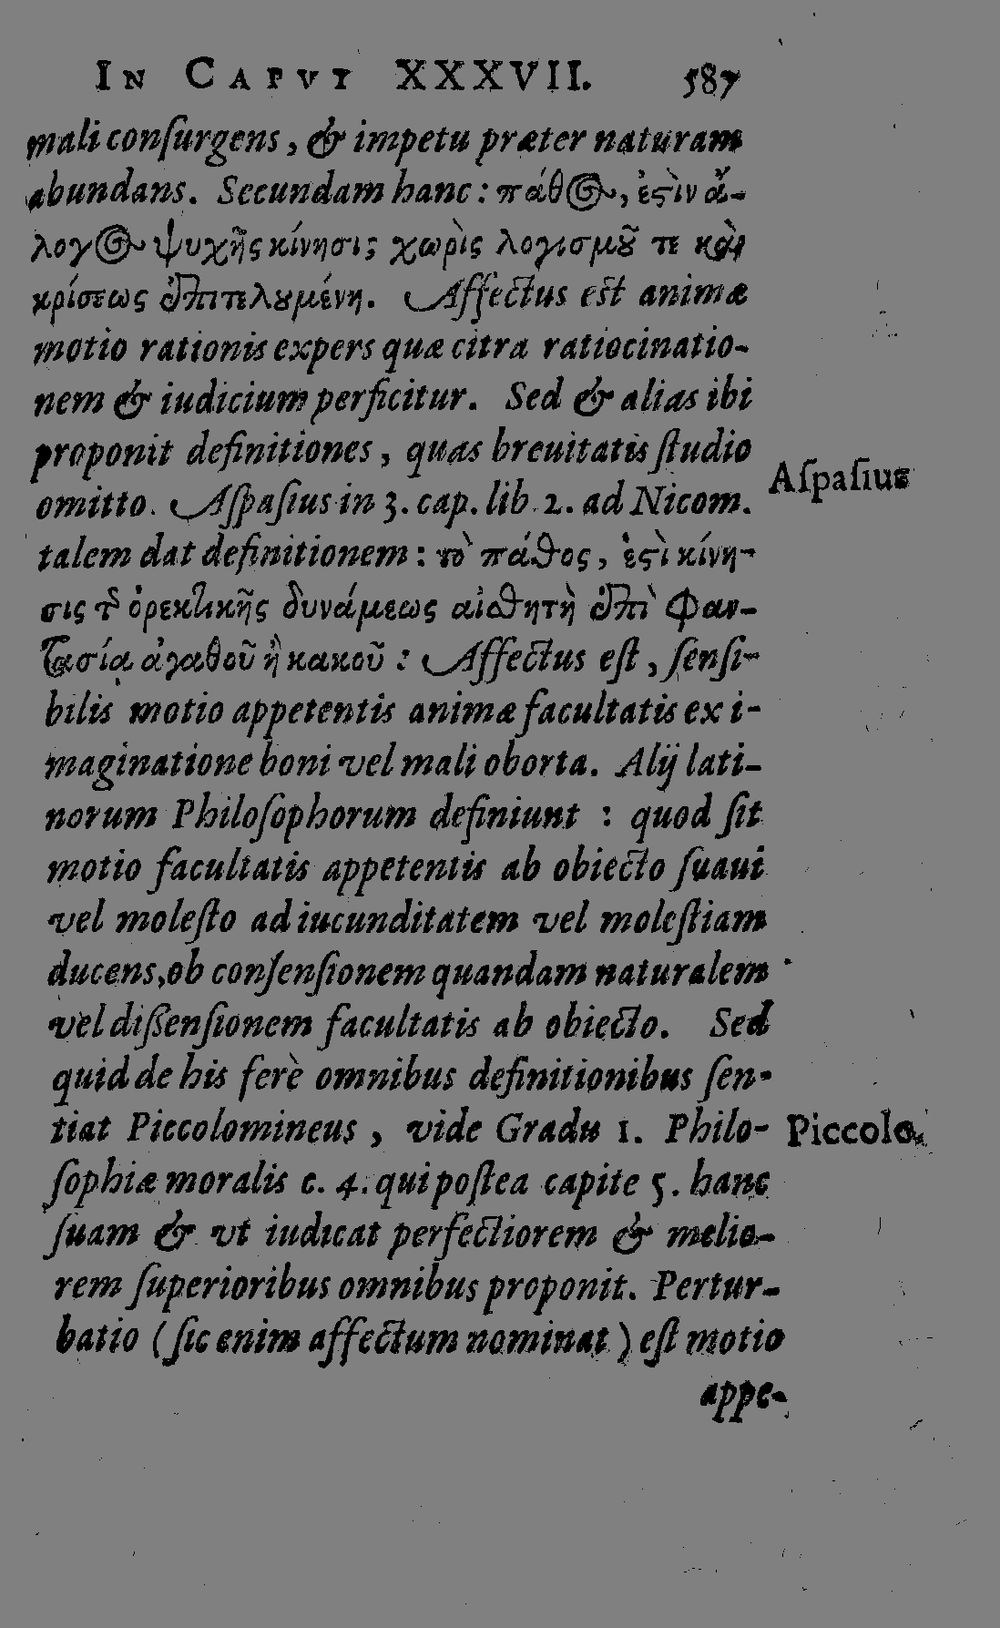 IN CAPVT XXXVII. 587
mali conſurgens, & impetu præter naturam
abundans. Secundam hanc: πάθος, ἐςὶν ἄ-
λογος ψυχῆς κίνησις χωρὶς λογισμȣ͂ τε καὶ
κρίσεως ἐπιτελȣμένη. Affectus est animæ
motio rationis expers quæ citra ratiocinatio-
nem & iudicium perficitur. Sed & alias ibi
proponit definitiones, quas breuitatis ſtudio
omitto. Aſpaſius in 3. cap. lib. 2. ad Nicom.
Aſpaſius
talem dat definitionem: τὸ πάθος, ἐςὶ κίνη-
σις τῆς ὀρεκτικῆς δυνάμεως αἰσθητὴ ἐπὶ φαν-
τασίᾳ ἀγαθοῦ ἢ κακοῦ: Affectus eſt, ſenſi-
bilis motio appetentis animæ facultatis ex i-
maginatione boni vel mali oborta. Alij lati-
norum Philoſophorum definiunt: quod ſit
motio facultatis appetentis ab obiecto ſuaui
vel moleſto ad iucunditatem vel moleſtiam
ducens, ob conſenſionem quandam naturalem
vel diſſenſionem facultatis ab obiecto. Sed
quid de his ferè omnibus definitionibus ſen-
tiat Piccolomineus, vide Gradu 1. Philo-
Piccolo.
ſophiæ moralis c. 4. qui poſtea capite 5. hanc
ſuam & vt iudicat perfectiorem & melio-
rem ſuperioribus omnibus proponit. Pertur-
batio (ſic enim affectum nominat) eſt motio
appe-